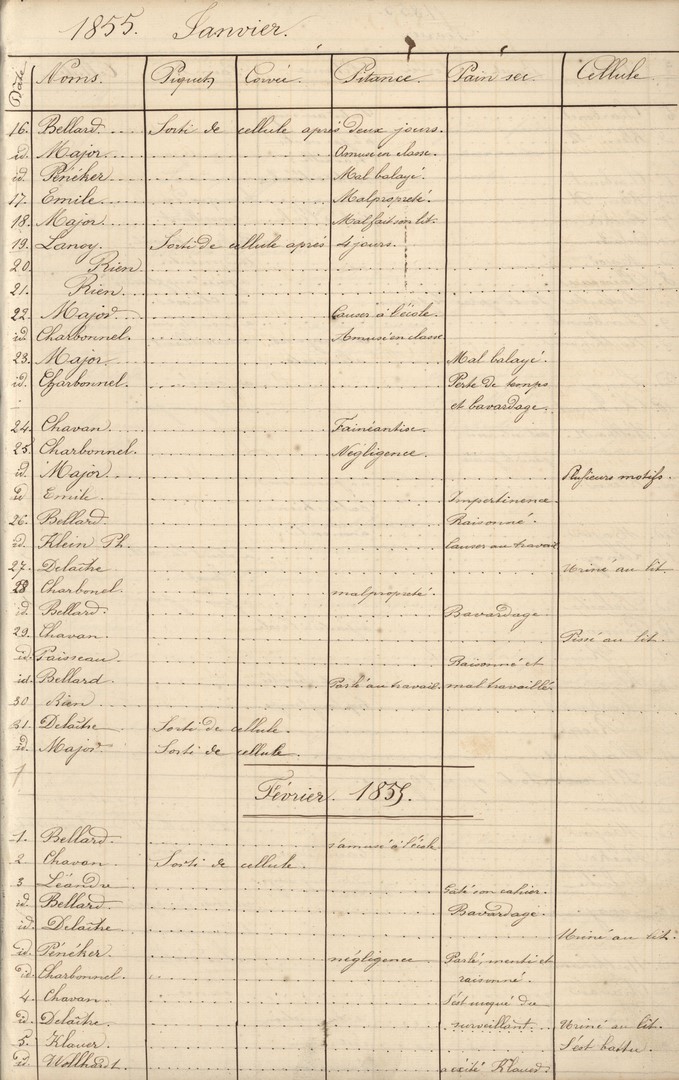 1855. Janvier.
Date Noms. Piquet Corvée Pitance. Pain sec. Cellule.
16. Bellard. Sorti de cellule après deux jours.
id. Major. Amusé en classe.
id. Pénéker. Mal balayé.
17. Emile. Malpropreté.
18. Major. Mal fait son lit.
19. Lanoy. Sorti de cellule après 4 jours.
20. Rien
21. Rien
22. Major. Causer à l'école.
id. Charbonnel. Amusé en classe
23. Major. Mal balayé.
id. Charbonnel. Perte de temps
et bavardage.
24. Chavan. Fainéantise.
25. Charbonnel. Négligence.
id. Major. Plusieurs motifs.
id Emile. Impertinence.
26. Bellard. Raisonné.
id. Klein Ph. Causer au travail
27. Delaître Uriné au lit.
28 Charbonel. malpropreté.
id. Bellard. Bavardage
29. Chavan. Pissé au lit.
id. Paisseau. Raisonné et
id. Bellard Parlé au travail. mal travaillé.
30 Rien
31. Delaître Sorti de cellule.
id. Major Sorti de cellule.
Février. 1855.
1. Bellard. s'amusé à l'école
2 Chavan. Sorti de cellule.
3 Léandre Gâté son cahier.
id. Bellard. Bavardage
id. Delaître Uriné au lit.
id. Pénéker. négligence Parlé, menti et
id. Charbonnel. raisonné.
4. Chavan. S'est moqué du
id. Delaître. surveillant. Uriné au lit.
5. Klauer. S'est battu.
id. Wollhardt. a excité Klauer.